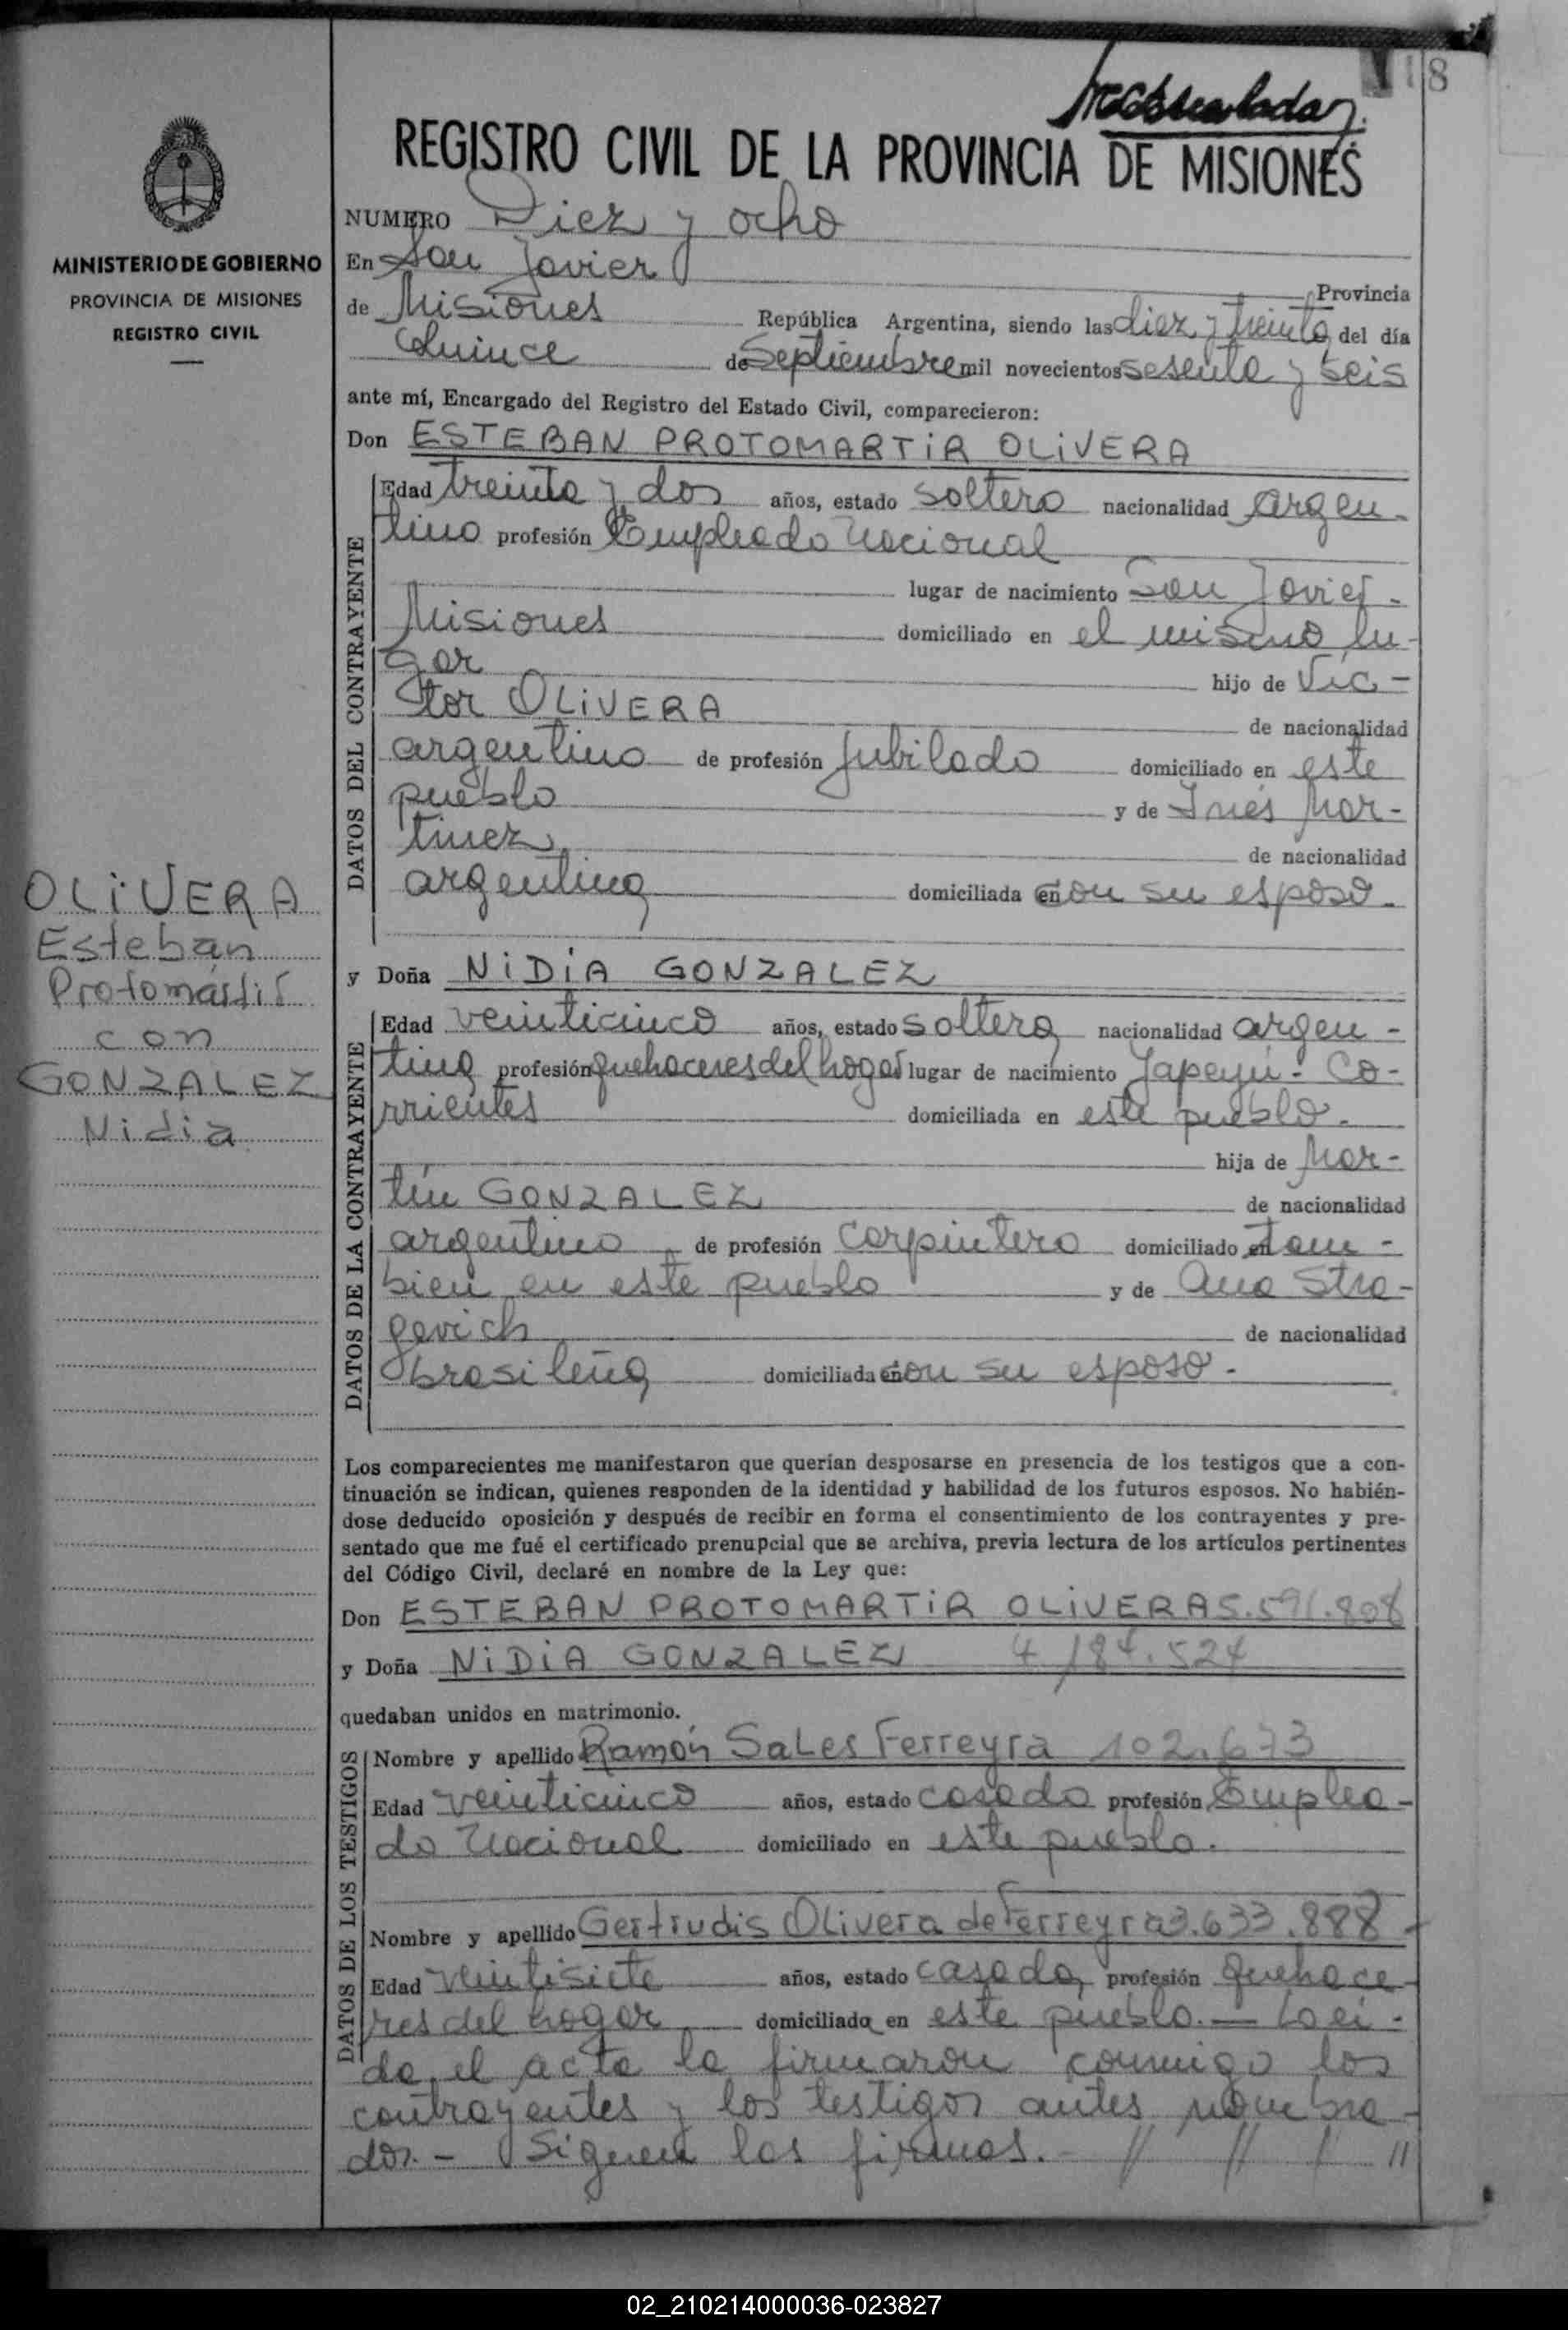 18
REGISTRO CIVIL DE LA PROVINCIA DE MISIONES
MINISTERIO DE GOBIERNO
PROVINCIA DE MISIONES
REGISTRO CIVIL
OLIVERA
Esteban
Protomártir
con
GONZALEZ
Nidia
NUMERO Diez y ocho
En San Javier Provincia
de Misiones República Argentina, siendo las diez y treinta del día
Quince de Septiembre mil novecientos sesenta y seis
ante mí, Encargado del Registro del Estado Civil, comparecieron:
Don ESTEBAN PROTOMARTiR OLiVERA
DATOS DEL CONTRAYENTE
Edad treinta y dos años, estado soltero nacionalidad argen-
tino profesión Empleado Nacional
lugar de nacimiento San Javier-
Misiones domiciliado en el mismo lu-
gar hijo de Víc-
tor OLiVERA de nacionalidad
argentino de profesión jubilado domiciliado en este
pueblo y de Inés Mar-
tinez de nacionalidad
argentina domiciliada en con su esposo.
y Doña NiDiA GONZALEZ
DATOS DE LA CONTRAYENTE
Edad veinticinco años, estado soltera nacionalidad argen-
tina profesión quehaceres del hogar lugar de nacimiento Yapeyú- Co-
rrientes domiciliada en este pueblo.
hija de Mar-
tín GONZALEZ de nacionalidad
argentino de profesión carpintero domiciliado en tam-
bien en este pueblo y de Ana Stra-
gevich de nacionalidad
brasileña domiciliada en con su esposo-
Los comparecientes me manifestaron que querían desposarse en presencia de los testigos que a con-
tinuación se indican, quienes responden de la identidad y habilidad de los futuros esposos. No habién-
dose deducido oposición y después de recibir en forma el consentimiento de los contrayentes y pre-
sentado que me fué el certificado prenupcial que se archiva, previa lectura de los artículos pertinentes
del Código Civil, declaré en nombre de la Ley que:
Don ESTEBAN PROTOMARTiR OLiVERA 5.591.808
y Doña NiDiA GONZALEZ 4 184.524
quedaban unidos en matrimonio.
DATOS DE LOS TESTIGOS
Nombre y apellido Ramón Sales Ferreyra 102.673
Edad veinticinco años, estado casado profesión Emplea-
do Nacional domiciliado en este pueblo.
Nombre y apellido Gertrudis Olivera de Ferreyra 3.633.888
Edad veintisiete años, estado casada, profesión quehace-
res del hogar domiciliada en este pueblo.— Leí-
da el acta la firmaron conmigo los
contrayentes y los testigos antes nombra-
dos.- Siguen las firmas.- // // / //
02_210214000036-023827